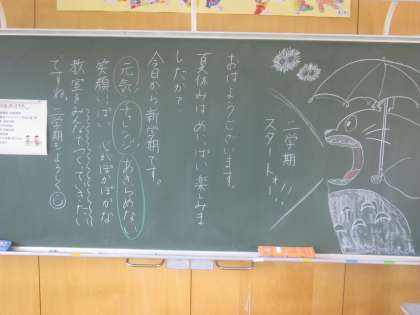 二学期
スタート!!!
おはようございます。
夏休みは めいっぱい 楽しみま
したか?
今日から新学期です。
元気 チャレンジ あきらめない
笑顔いっぱい 心がぽかぽかな
教室をみんなでつくっていきたい
ですね。二学期もよろしく